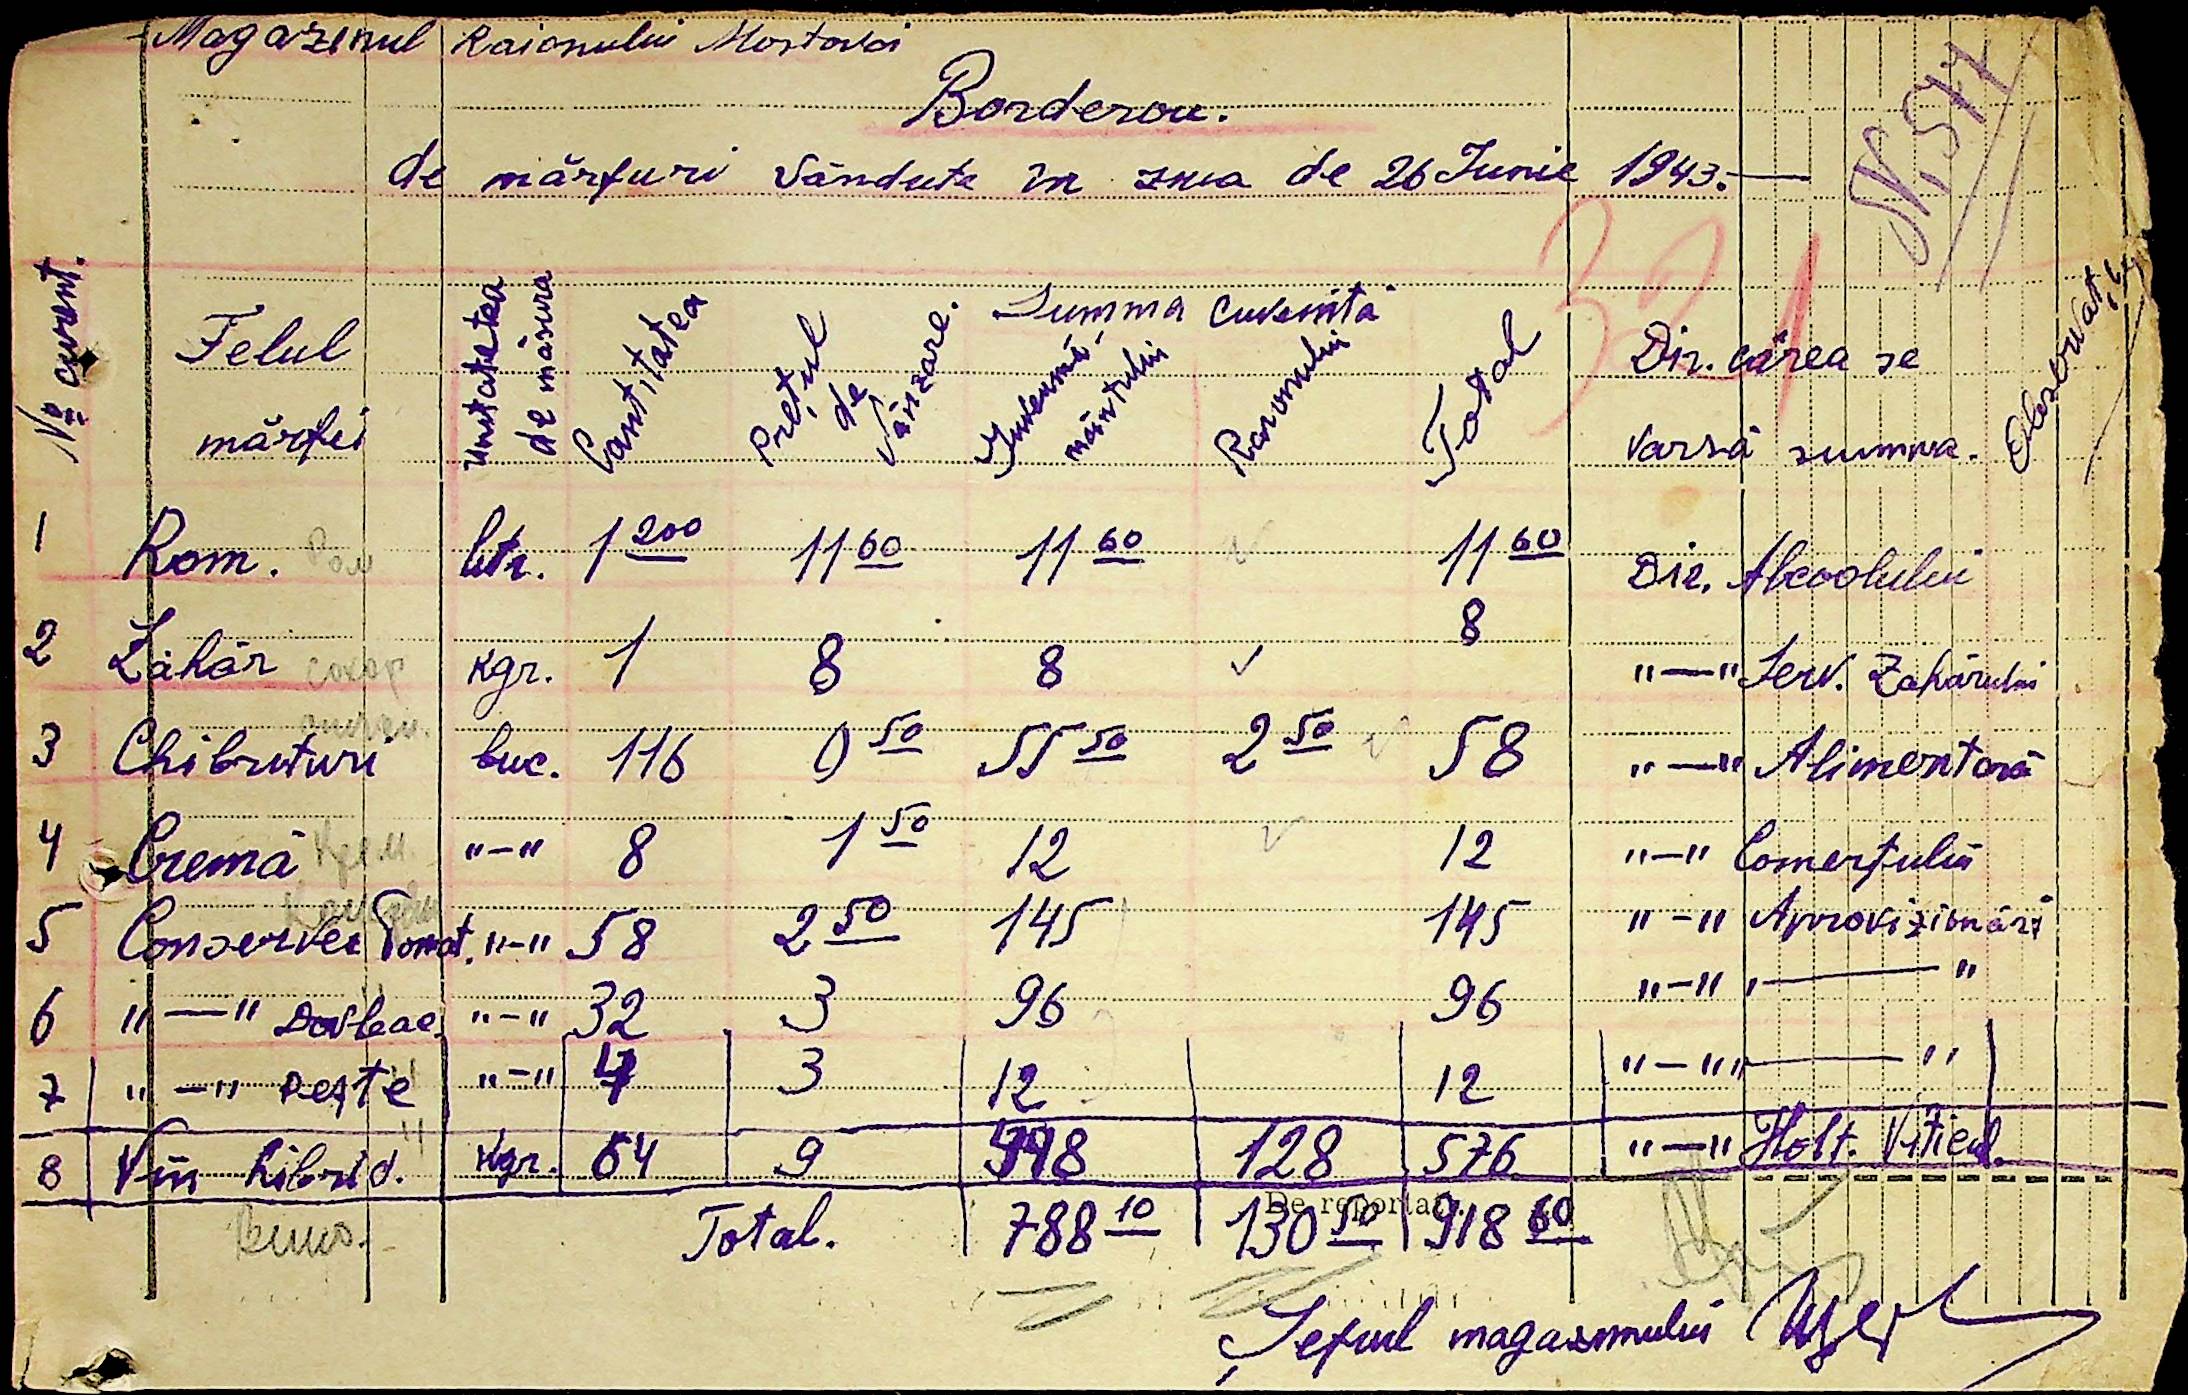 Magazinul Raionului Mostovoi
Borderou.
de mărfuri vândute in ziua de 26 Iunie 1943.—
N. 577
321
№ curent.
Felul mărfei
Unitatea de măsura
Cantitatea
Prețul de vânzare.
Summa cuvenită
Guvernă-mântului
Raionului
Total
Dir. cărea se varsă summa.
Observații
1 Rom. Ром litr. 1 200 11 60 11 60 11 60 Dir. Alcoolului
2 Zahăr сахар kgr. 1 8 8 8 "—" Serv. Zahărului
3 Chibrituri buc. 116 0 50 55 50 2 50 58 "—" Alimentară
4 Cremă Крем "-" 8 1 50 12 12 "—" Comerțului
5 Conserve Tomat. "-" 58 2 50 145 145 "-" Aprovizionări
6 "—" Dovleac. "-" 32 3 96 96 "-" "——"
7 "-" Pește "-" 4 3 12 12 "-" "——"
8 Vin hibrid. kgr. 64 9 448 128 576 "—" Hort. Viticul.
Вино.
De reportat
Total. 788 10 130 50 918 60
Șeful magazinului